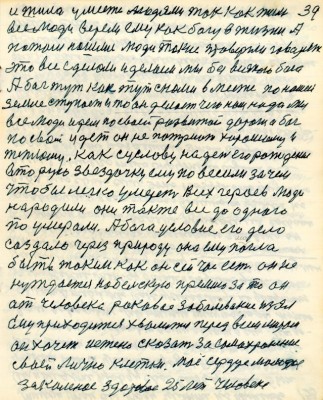 и жила умете людями так как жили 39
все люди верем ему как богу в жизни А
потом пошли люди такие проверим говорят
это все сделали и делаем мы без всякой бога
А бог тут как тут с нами вместе по нашей
земле строит и то он делает чего нам надо мы
все люди идем по своей развитой дороге а бог
по своей идет он не потерпит хорошему и
теплому, Как Суслову на дет его рождения
вторую звездочку ему повесили зачем
чтобы легко умереть Всех героев люди
народили они также все до одного
по умерали. А бога условие его дело
создало через природу она ему погла
быть таким как он сей час есть он не
нуждается нобелскую премию за то он
от человека раковое заболевание изгнал
ему приходится хвалити перед всеми
он хочет истено сказать за самохранение
своей лично клетки. Моё сердце молодого
закаленое здоровое 25 лет человека